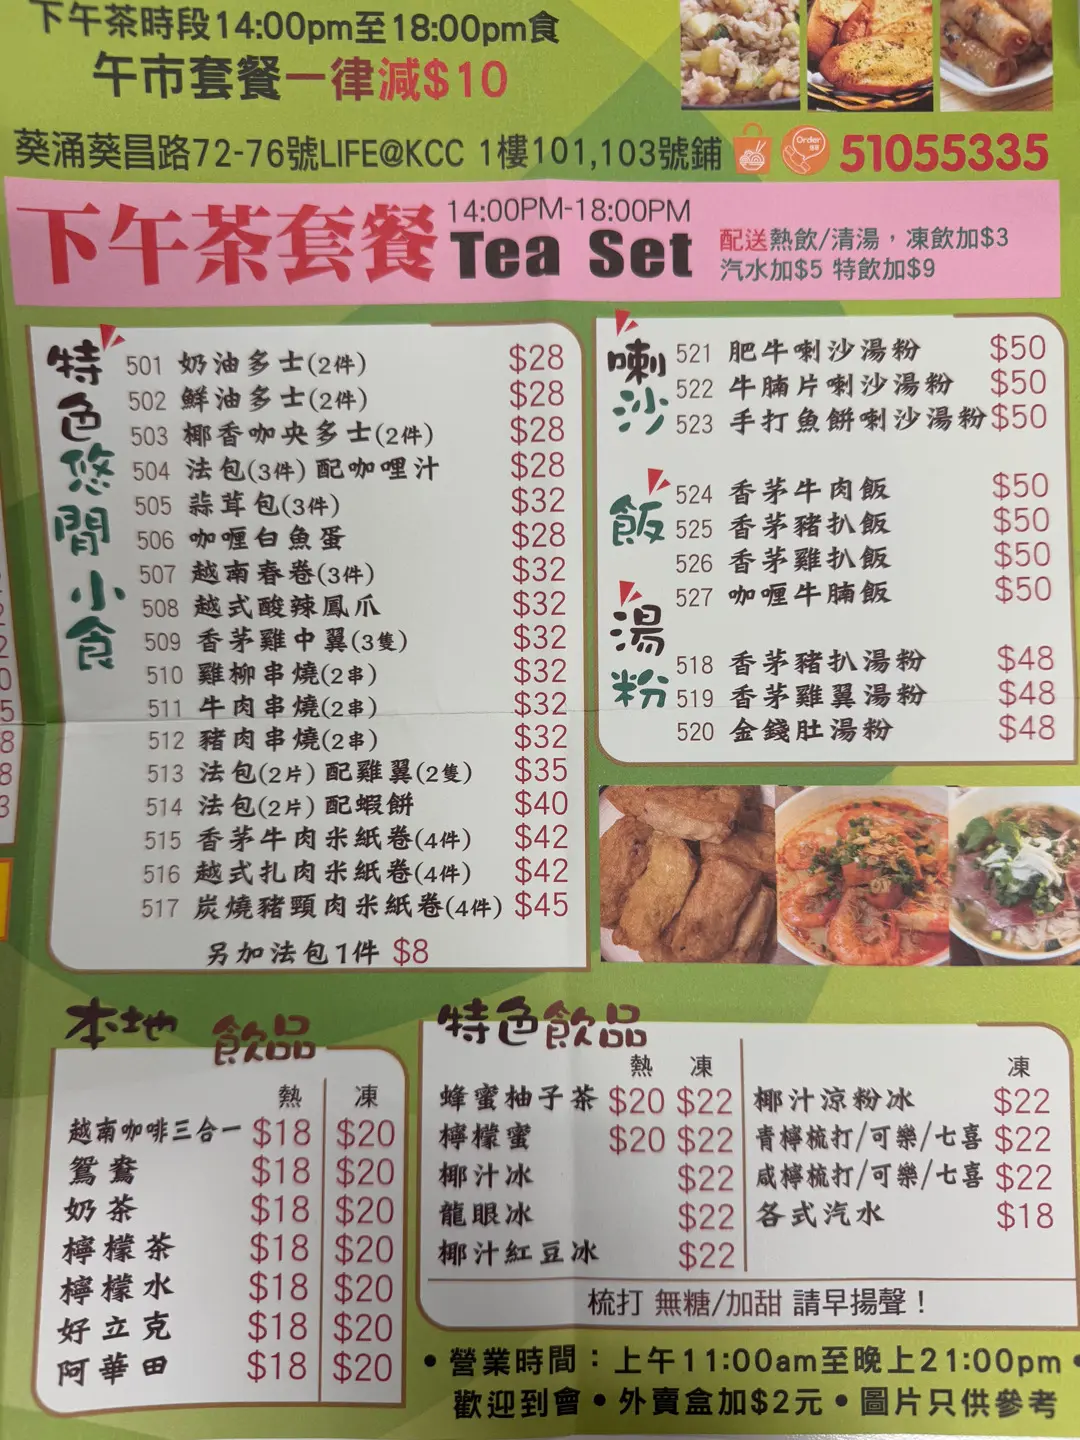 下午茶時段14:00pm至18:00pm食
午市套餐一律減$10
葵涌葵昌路72-76號LIFE@KCC 1樓101,103號鋪 Order 51055335
下午茶套餐 14:00PM-18:00PM
Tea Set
配送熱飲/清湯，凍飲加$3
汽水加$5 特飲加$9
特色悠閒小食
501 奶油多士(2件) $28
502 鮮油多士(2件) $28
503 椰香咖央多士(2件) $28
504 法包(3件)配咖哩汁 $28
505 蒜茸包(3件) $32
506 咖喱白魚蛋 $28
507 越南春卷(3件) $32
508 越式酸辣鳳爪 $32
509 香茅雞中翼(3隻) $32
510 雞柳串燒(2串) $32
511 牛肉串燒(2串) $32
512 豬肉串燒(2串) $32
513 法包(2片)配雞翼(2隻) $35
514 法包(2片)配蝦餅 $40
515 香茅牛肉米紙卷(4件) $42
516 越式扎肉米紙卷(4件) $42
517 炭燒豬頸肉米紙卷(4件) $45
另加法包1件 $8
喇沙
521 肥牛喇沙湯粉 $50
522 牛腩片喇沙湯粉 $50
523 手打魚餅喇沙湯粉 $50
飯
524 香茅牛肉飯 $50
525 香茅豬扒飯 $50
526 香茅雞扒飯 $50
527 咖喱牛腩飯 $50
湯粉
518 香茅豬扒湯粉 $48
519 香茅雞翼湯粉 $48
520 金錢肚湯粉 $48
本地飲品
熱 凍
越南咖啡三合一 $18 $20
鴛鴦 $18 $20
奶茶 $18 $20
檸檬茶 $18 $20
檸檬水 $18 $20
好立克 $18 $20
阿華田 $18 $20
特色飲品
熱 凍
蜂蜜柚子茶 $20 $22
檸檬蜜 $20 $22
椰汁冰 $22
龍眼冰 $22
椰汁紅豆冰 $22
凍
椰汁涼粉冰 $22
青檸梳打/可樂/七喜 $22
咸檸梳打/可樂/七喜 $22
各式汽水 $18
梳打 無糖/加甜 請早揚聲！
• 營業時間：上午11:00am至晚上21:00pm •
歡迎到會 • 外賣盒加$2元 • 圖片只供參考